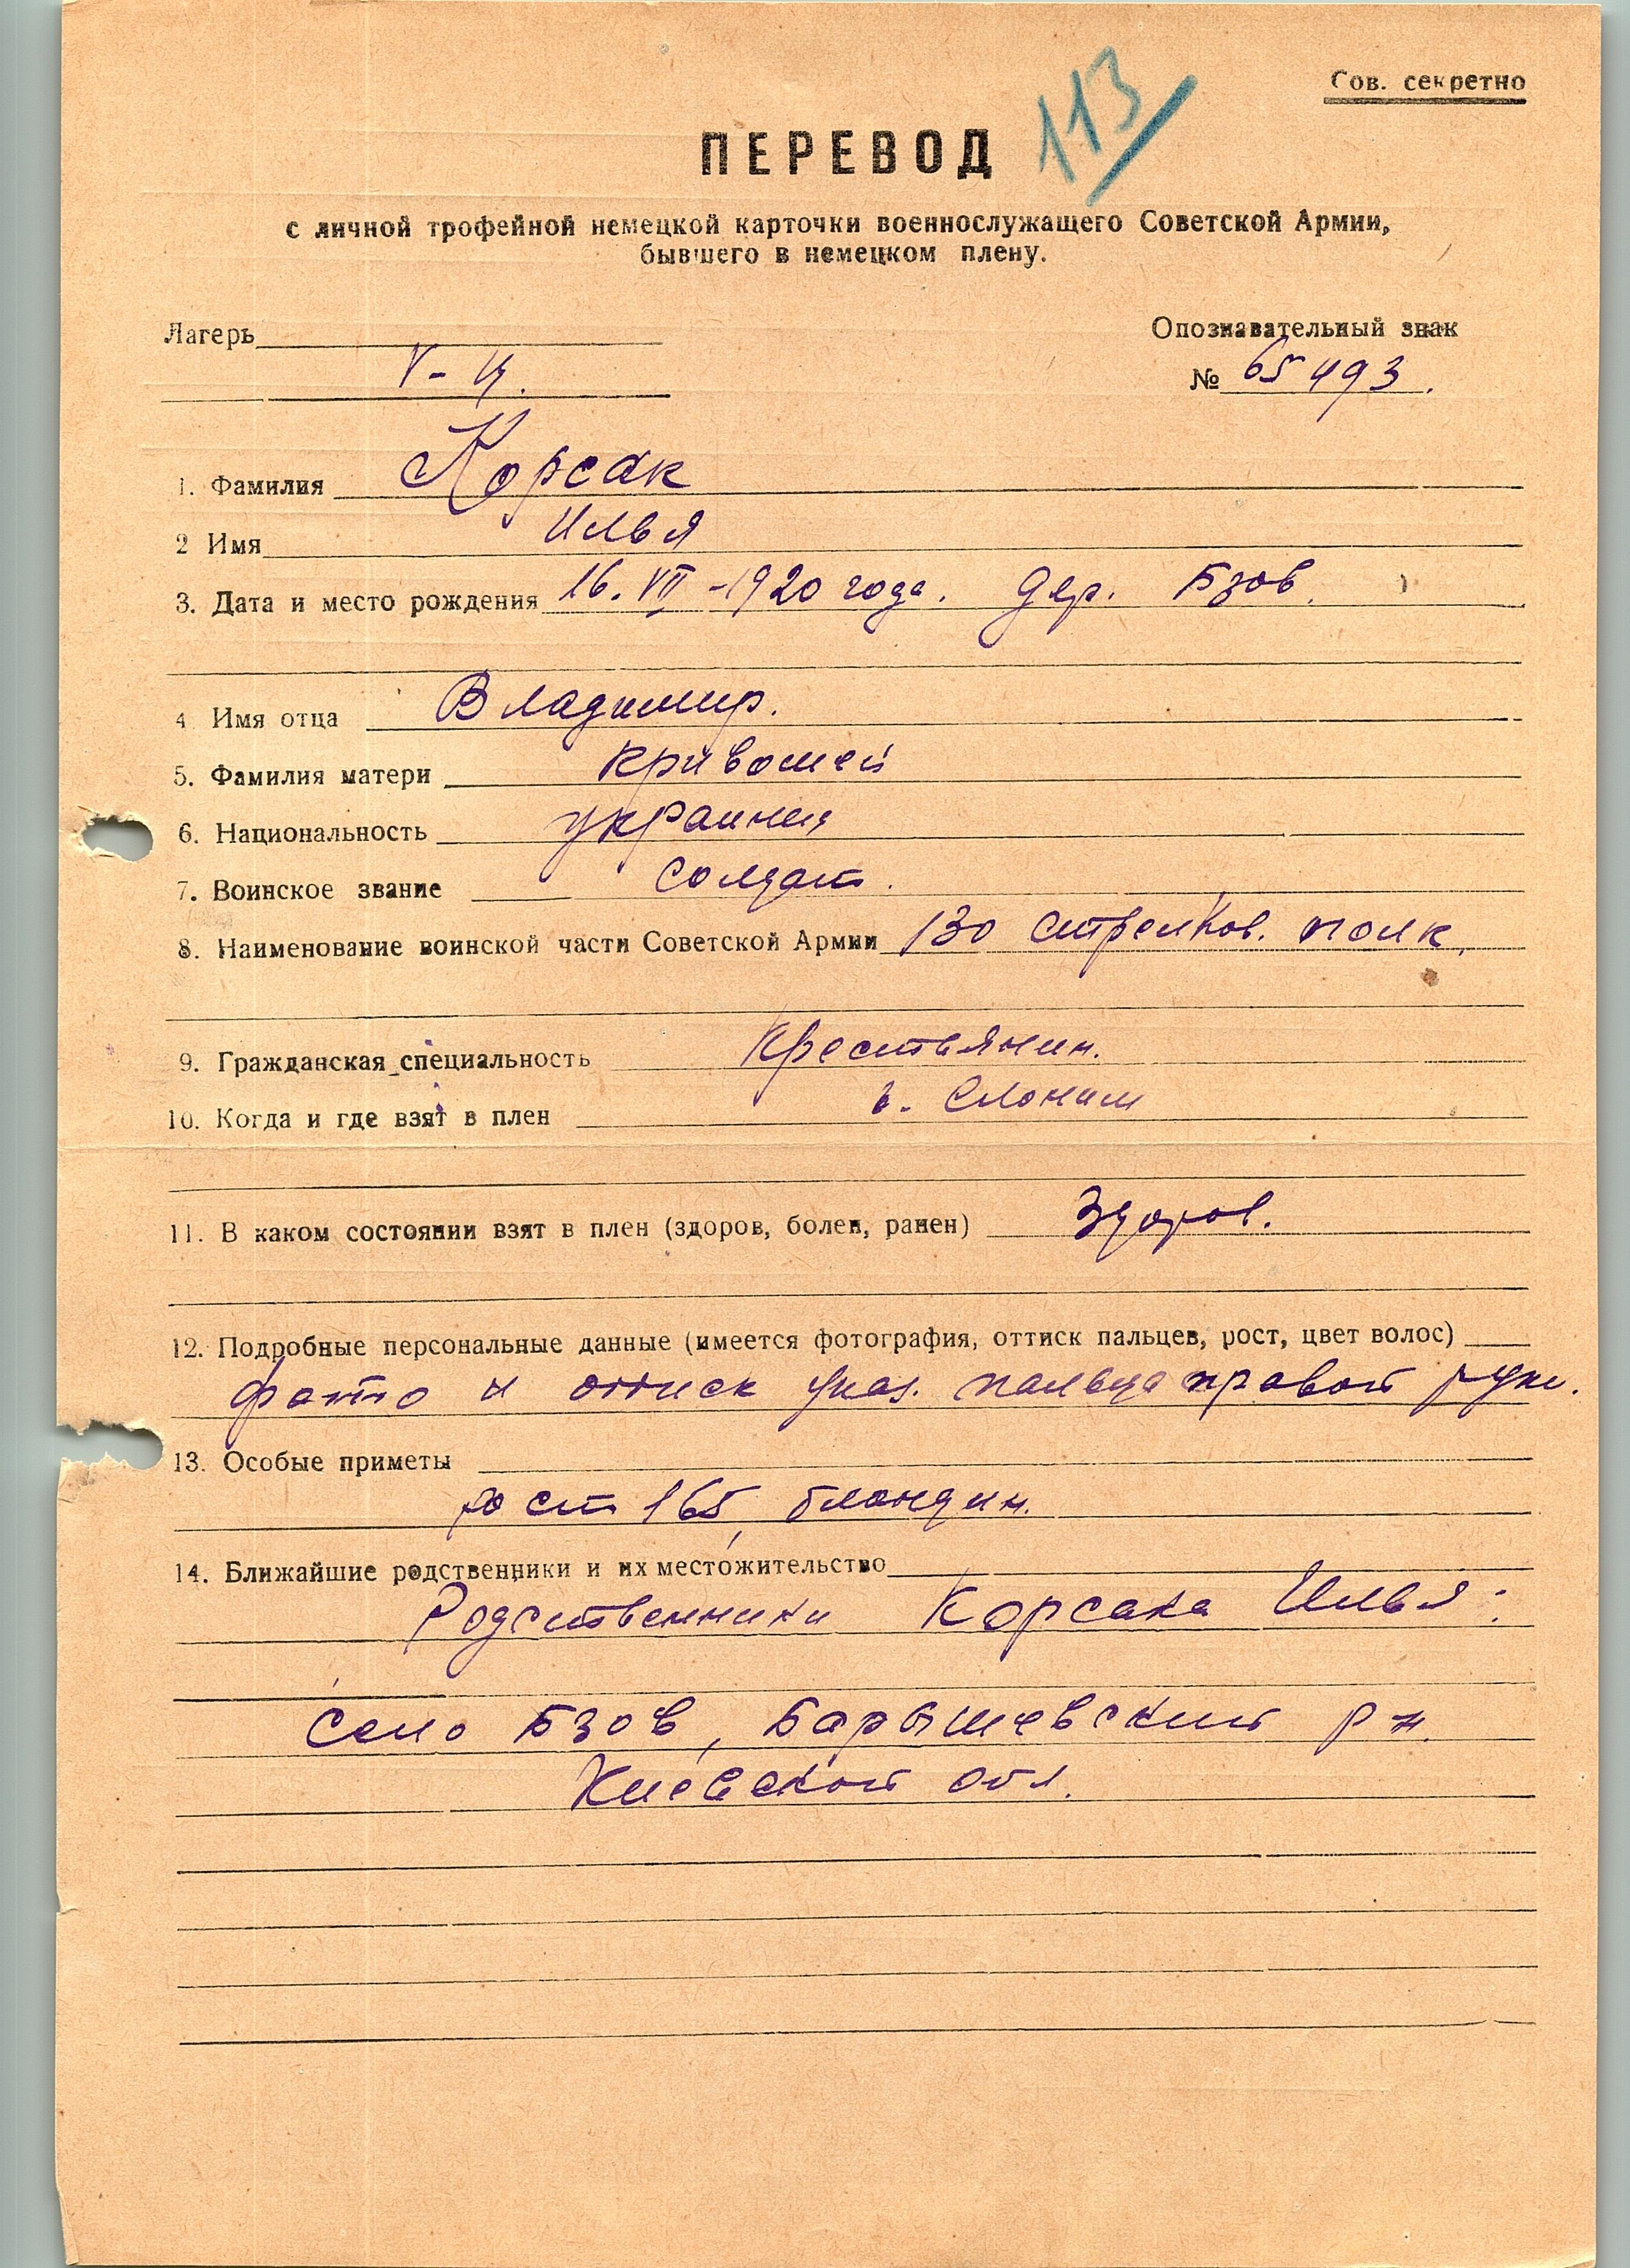 Сов. секретно
113
ПЕРЕВОД
с личной трофейной немецкой карточки военнослужащего Советской Армии,
бывшего в немецком плену.
Лагерь
Опознавательный знак
V-
№ 65493.
1. Фамилия Корсак
2 Имя Илья
3. Дата и место рождения 16.VII-1920 года. дер. Бзов.
4 Имя отца Владимир.
5. Фамилия матери Кривошей
6. Национальность украинец
7. Воинское звание солдат.
8. Наименование воинской части Советской Армии 130 стрелков. полк.
9. Гражданская специальность Крестьянин.
10. Когда и где взят в плен г. Слоним
11. В каком состоянии взят в плен (здоров, болен, ранен) Здоров.
12. Подробные персональные данные (имеется фотография, оттиск пальцев, рост, цвет волос)
фото и оттиск указ. пальца правой руки.
13. Особые приметы
рост 165, блондин.
14. Ближайшие родственники и их местожительство
Родственники Корсака Илья:
село Бзов, Барышевский р-н.
Киевской обл.